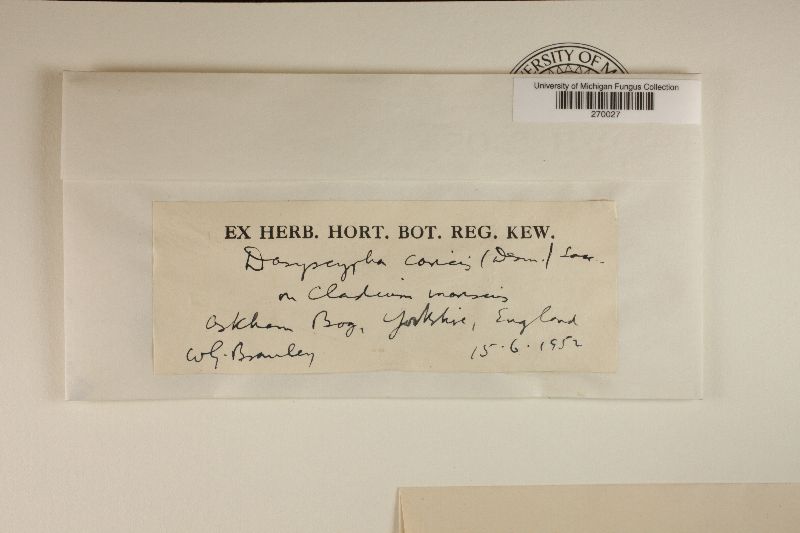 UNIVERSITY OF M
University of Michigan Fungus Collection
270027
EX HERB. HORT. BOT. REG. KEW.
Dasyscypha caricis (Desm.) Sacc.
on Cladium mariscus
Askham Bog, Yorkshire, England
W.G. Bramley 15.6.1952